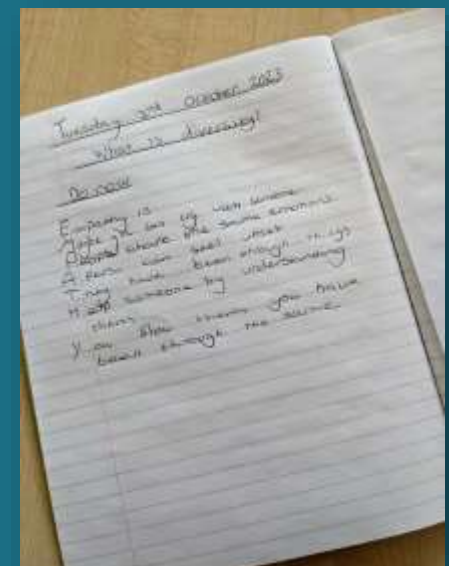 Tuesday 3rd October 2023
What is diversity?
Do now
Empathy is
Maybe you with someone
People share the same emotions
A person can feel upset
They have been through things
H someone by understanding
them
You show them you have
been through the same.